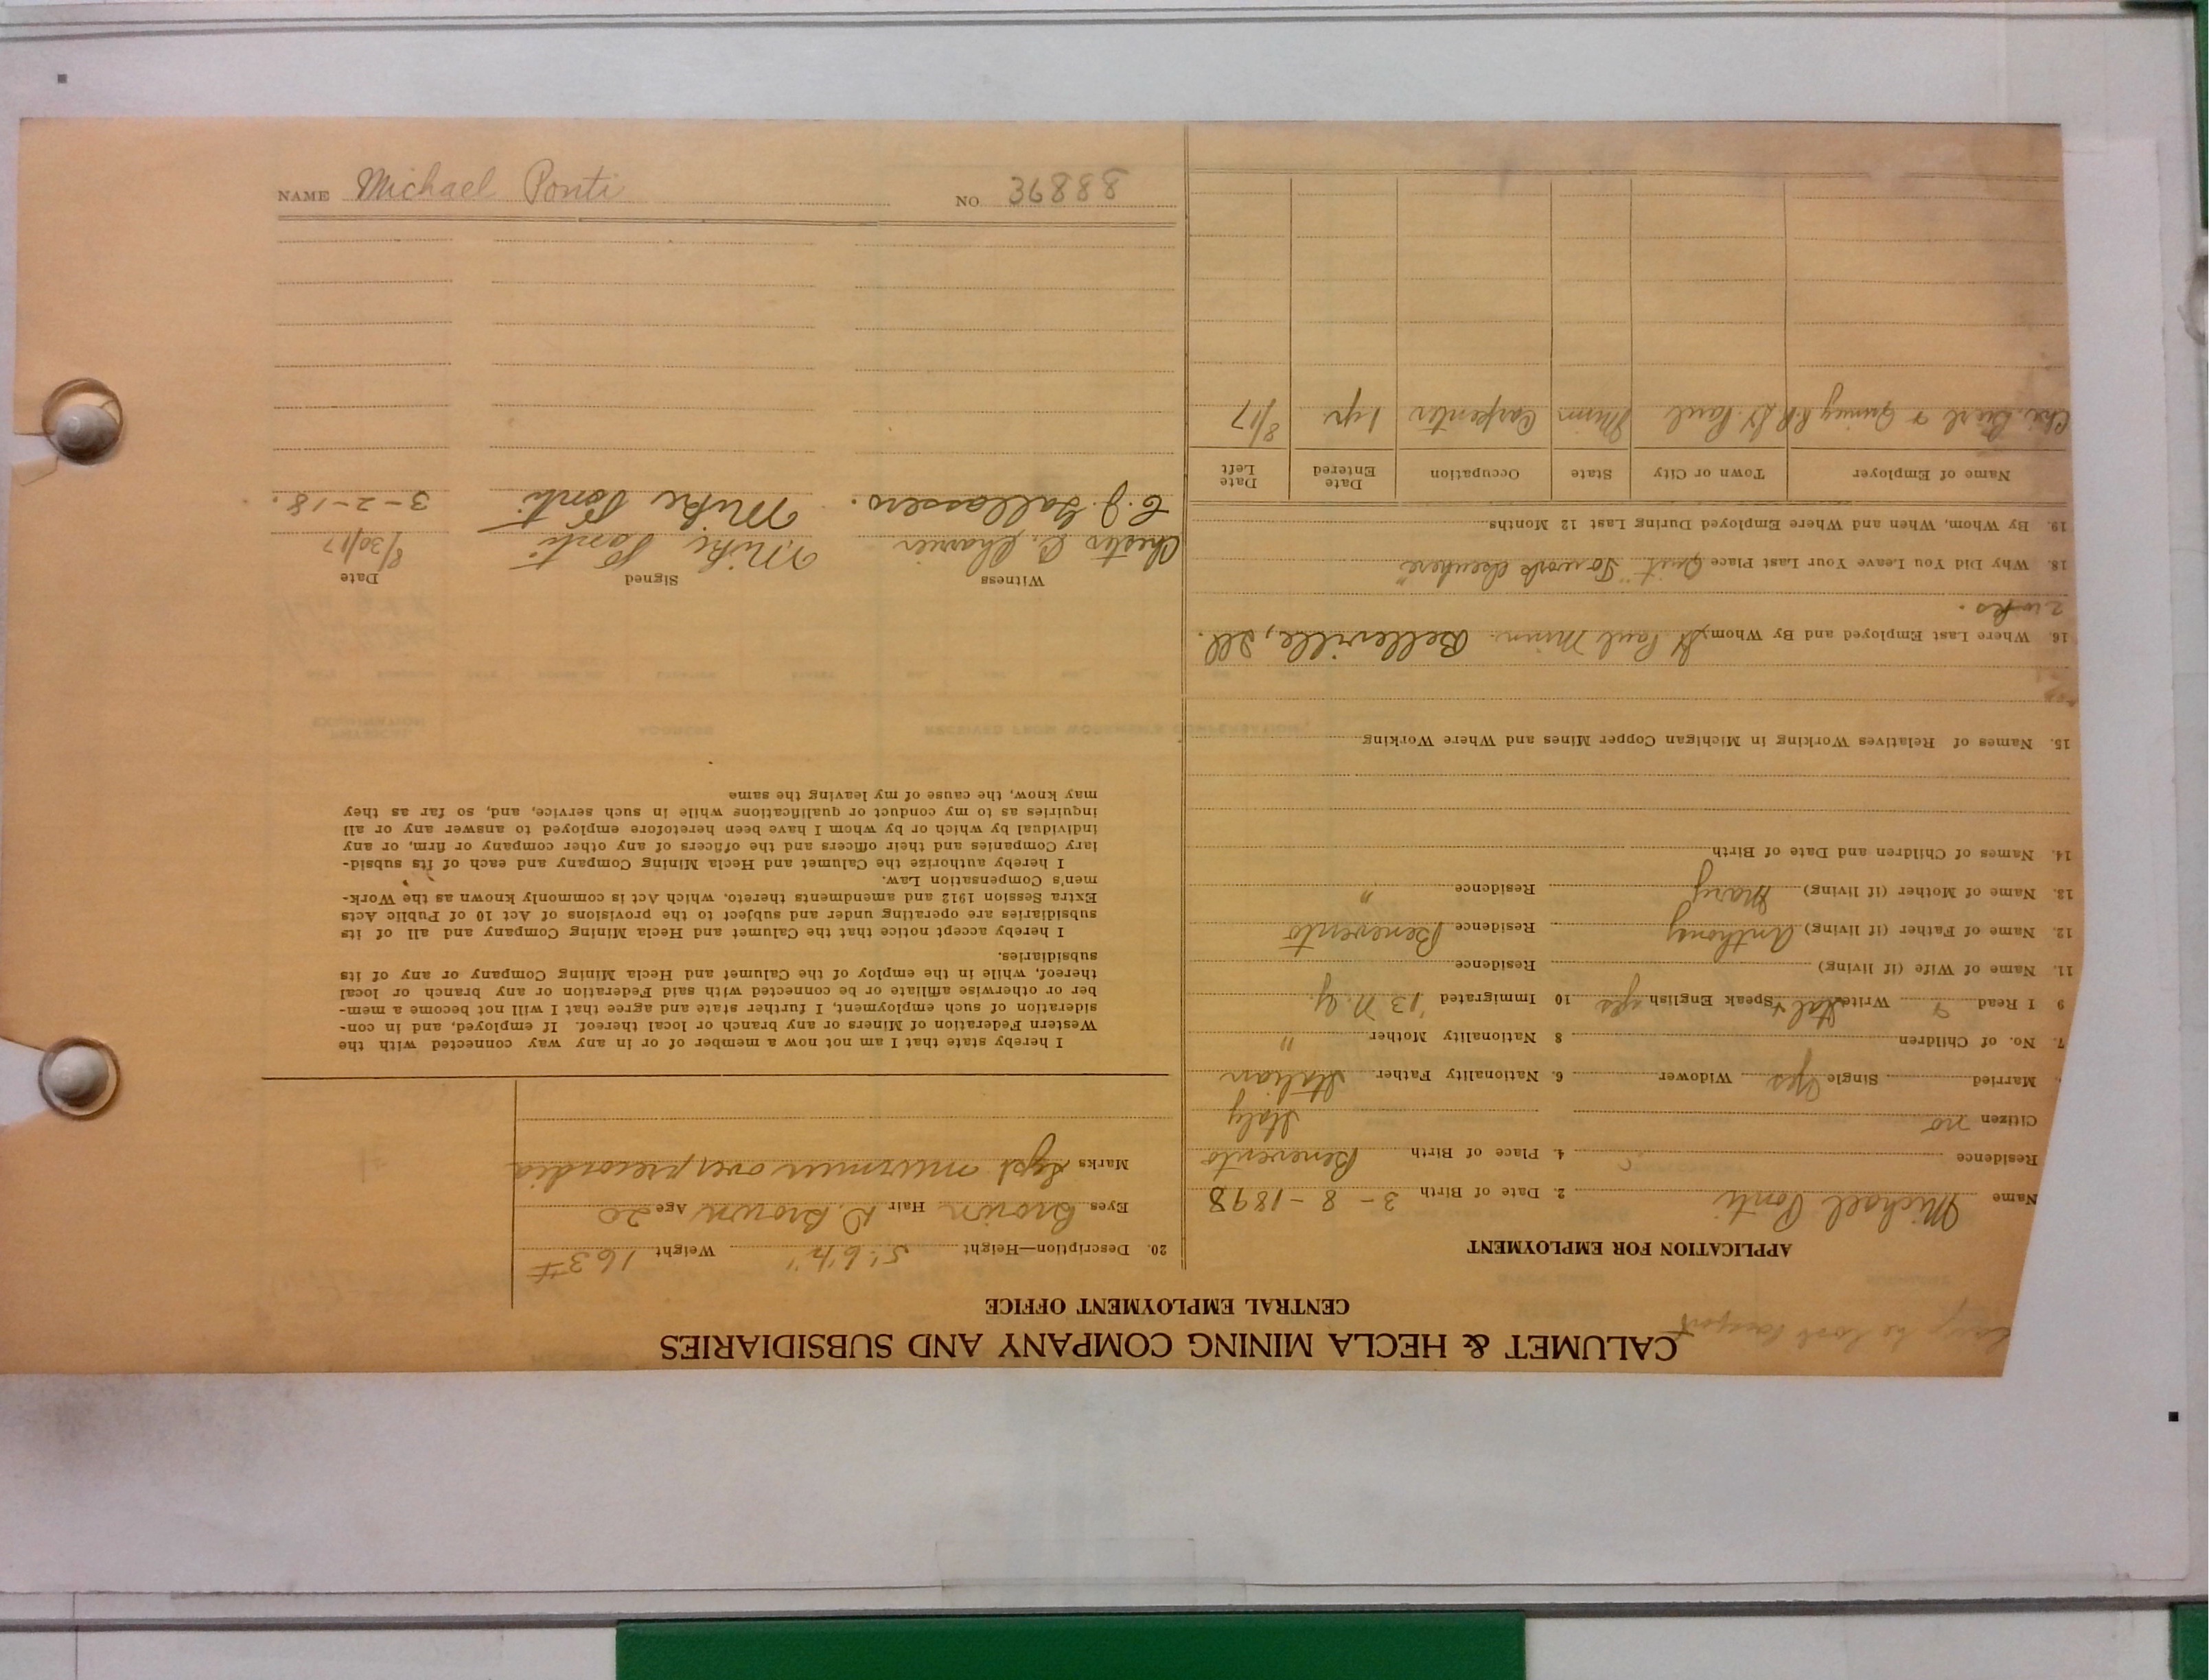 CALUMET & HECLA MINING COMPANY AND SUBSIDIARIES
CENTRAL EMPLOYMENT OFFICE
APPLICATION FOR EMPLOYMENT
Name Michael Ponti 2. Date of Birth 3-8-1898
Residence 4. Place of Birth Benevento
Citizen no Italy
Married Single yes Widower 6. Nationality Father Italian
7. No. of Children 8 Nationality Mother "
9 I Read & Write Ital + Speak English yes 10 Immigrated '13 N.Y.
11. Name of Wife (if living) Residence
12. Name of Father (if living) Anthony Residence Benevento
13. Name of Mother (if living) Mary Residence "
14. Names of Children and Date of Birth
15. Names of Relatives Working in Michigan Copper Mines and Where Working
16. Where Last Employed and By Whom St Paul Minn. Belleville, Ill.
2 wks.
18. Why Did You Leave Your Last Place Quit "To work elsewhere"
19. By Whom, When and Where Employed During Last 12 Months
Name of Employer Town or City State Occupation Date Entered Date Left
Chi. Burl & Quincy R.R. St. Paul Minn Carpenter 1 yr 8/17
20. Description—Height 5' 6 1/2" Weight 163#
Eyes Brown Hair D. Brown Age 20
Marks Syst murmur over precordia
I hereby state that I am not now a member of or in any way connected with the
Western Federation of Miners or any branch or local thereof. If employed, and in con-
sideration of such employment, I further state and agree that I will not become a mem-
ber or otherwise affiliate or be connected with said Federation or any branch or local
thereof, while in the employ of the Calumet and Hecla Mining Company or any of its
subsidiaries.
I hereby accept notice that the Calumet and Hecla Mining Company and all of its
subsidiaries are operating under and subject to the provisions of Act 10 of Public Acts
Extra Session 1912 and amendments thereto, which Act is commonly known as the Work-
men's Compensation Law.
I hereby authorize the Calumet and Hecla Mining Company and each of its subsid-
iary Companies and their officers and the officers of any other company or firm, or any
individual by which or by whom I have been heretofore employed to answer any or all
inquiries as to my conduct or qualifications while in such service, and, so far as they
may know, the cause of my leaving the same
Witness Signed Date
Chester C. Mike Ponti 8/30/17
C. J. Mike Ponti 3-2-18.
NAME Michael Ponti NO. 36888